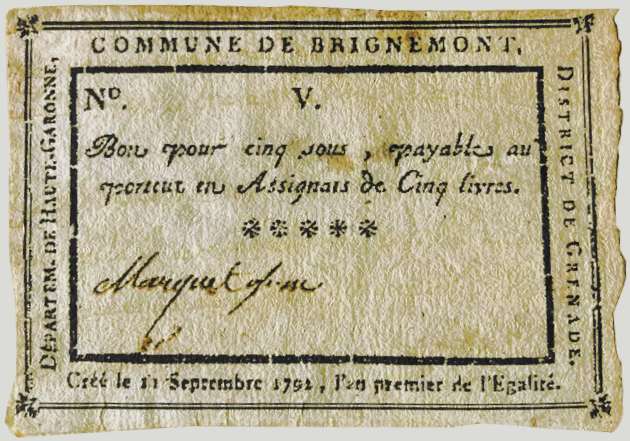 COMMUNE DE BRIGNEMONT,
DÉPARTEM. DE HAUTE-GARONNE,
DISTRICT DE GRENADE.
No. V.
Bon pour cinq sous, payable au
porteur en Assignats de Cinq livres.
Marquet
Créé le 11 Septembre 1792, l'an premier de l'Egalité.